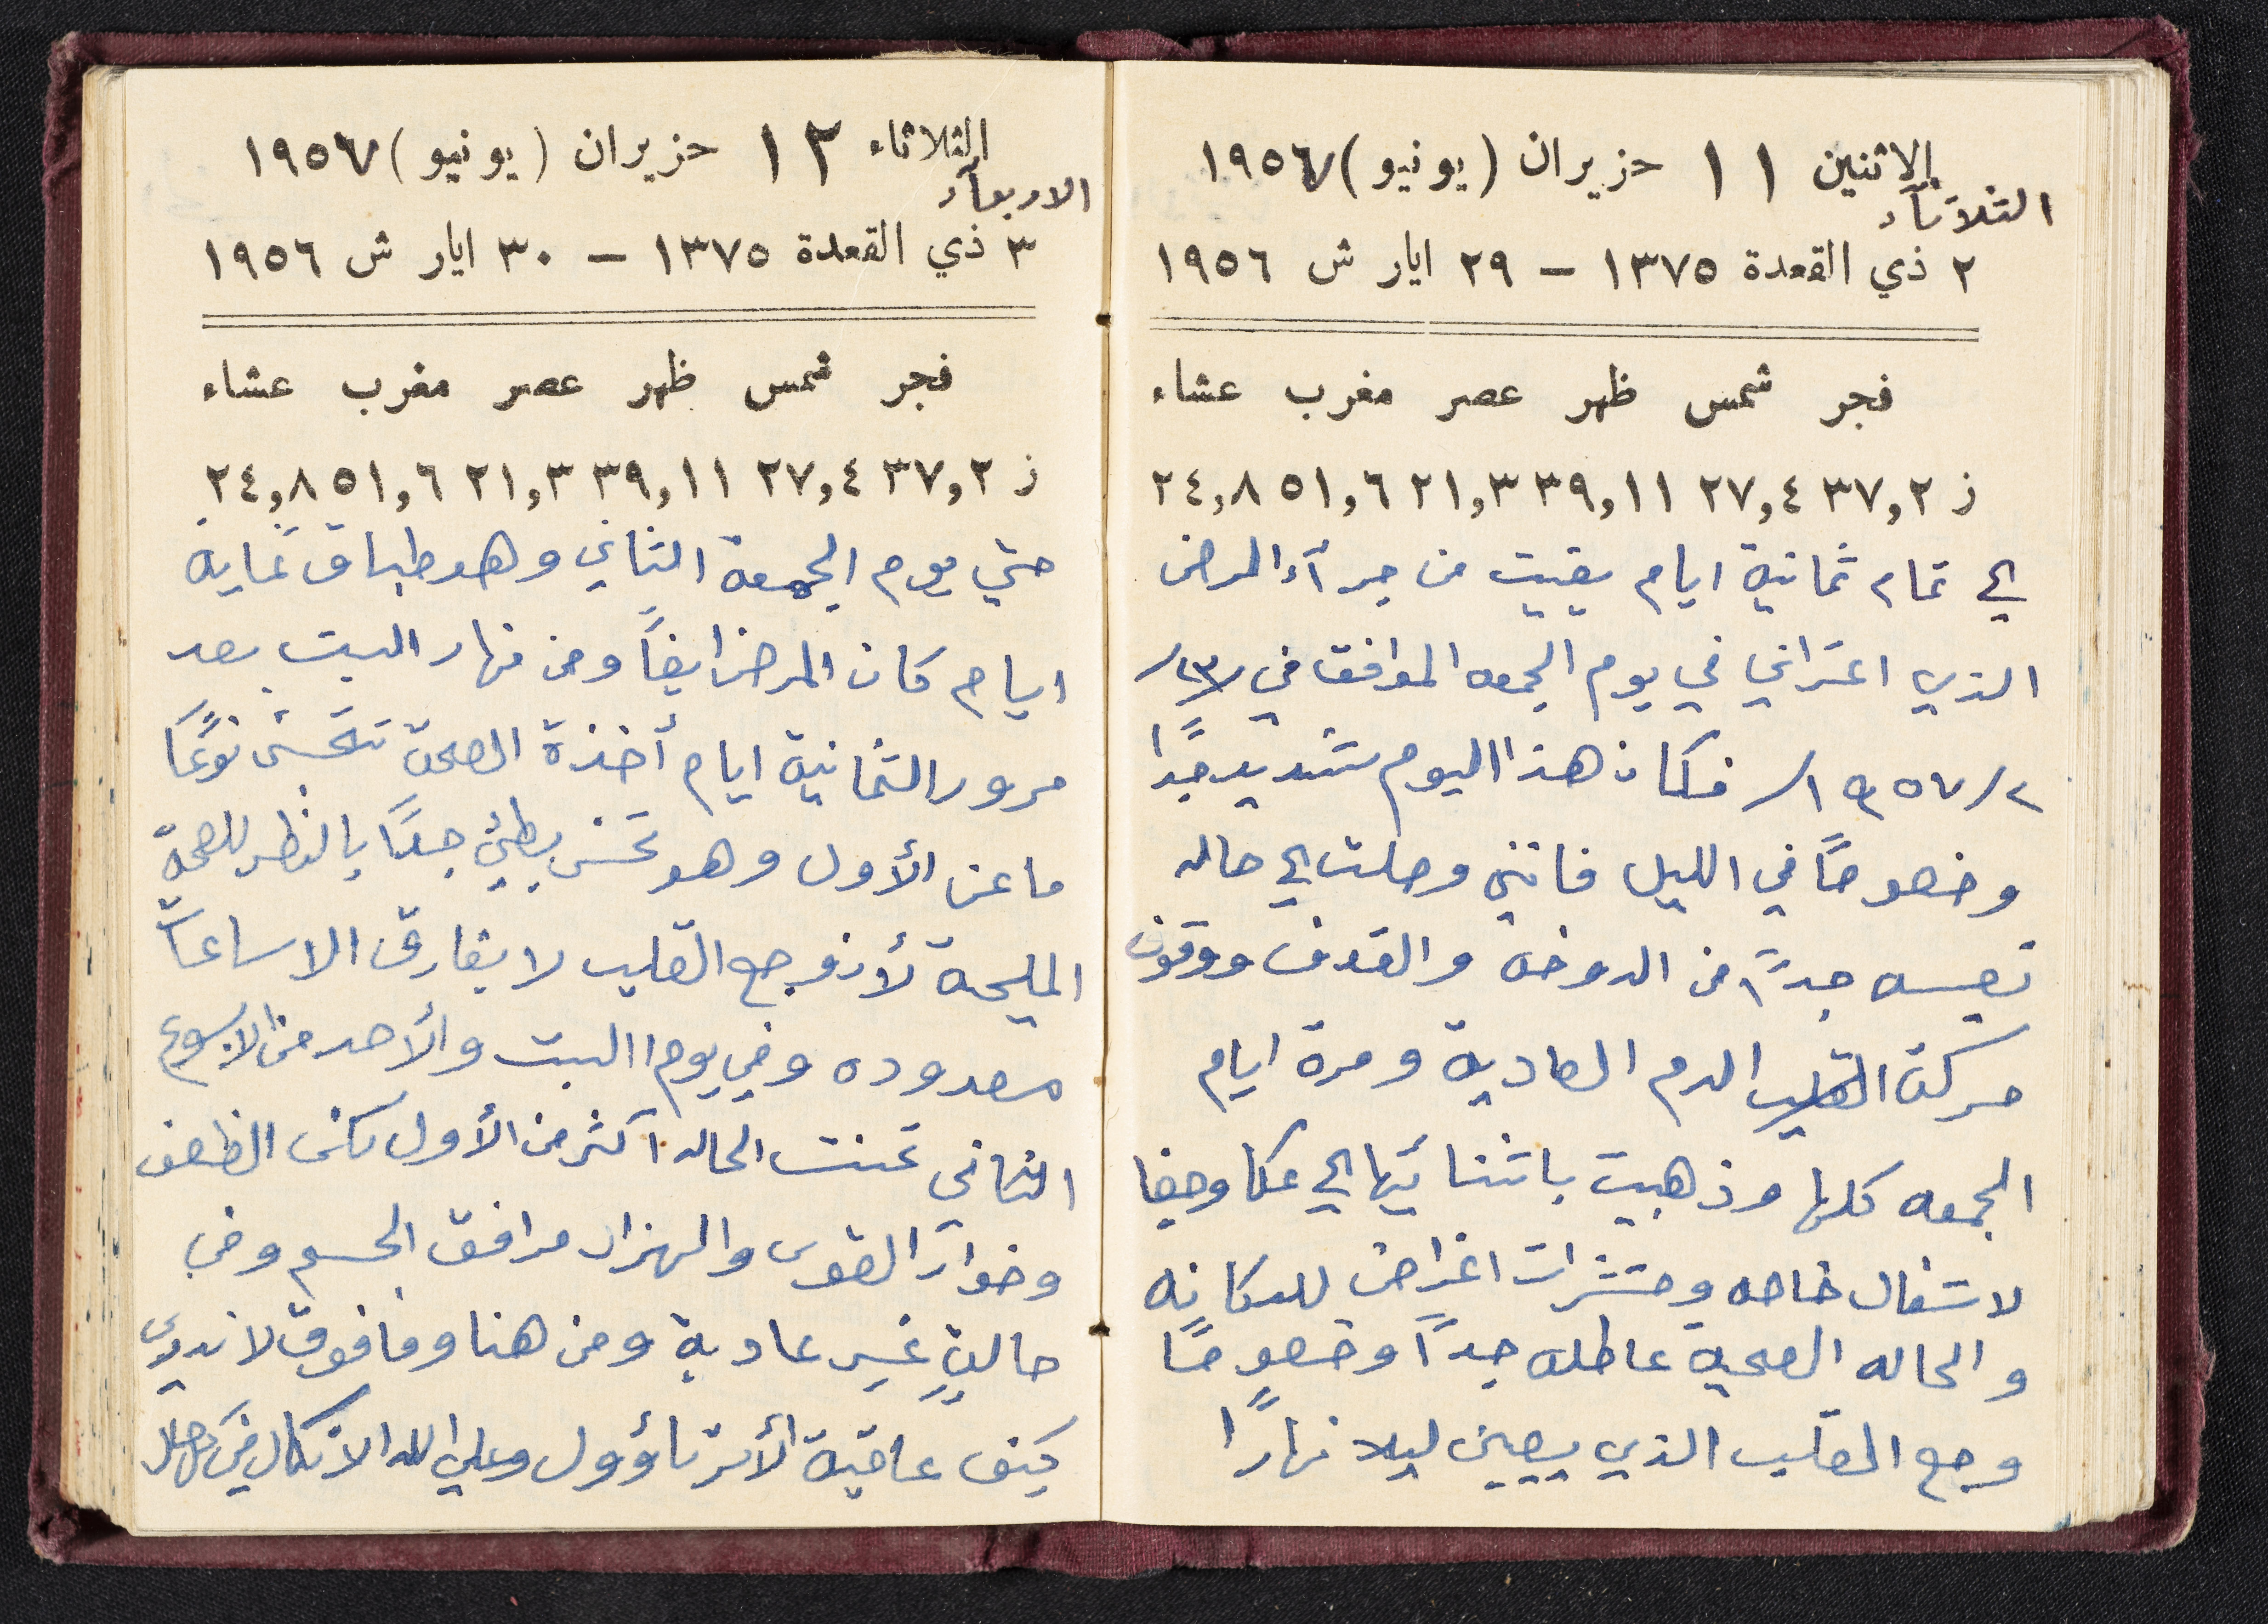 الاثنين ١١ حزيران (يونيو) ١٩٥٦٧
الثلاثآء
٢ ذي القعدة ١٣٧٥ – ٢٩ ايار ش ١٩٥٦
فجر شمس ظهر عصر مغرب عشاء
ز ٣٧,٢ ٢٧,٤ ٣٩,١١ ٢١,٣ ٥١,٦ ٢٤,٨
لي تمام ثمانية ايام بقيت من جرآء المرض
الذي اعتراني في يوم الجمعه الموافق في
١٩٥٧/ فكان هذا اليوم شديد جدًا
وخصوصًا في الليل فانني وصلت الي حاله
تعيسه جدًا من الدوخه والقذف ووقوف
حركة القلب الدم العادية ومرة ايام
الجمعه كلها وذهبت باثنائها الي عكا وحيفا
لاشغال خاصه ومشترات اغراض للدكانه
والحاله الصحية عاطله جدًا وخصوصًا
وجع القلب الذي يصيبني ليلا نهارًا
الثلاثاء ١٢ حزيران (يونيو) ١٩٥٦٧
الاربعآء
٣ ذي القعدة ١٣٧٥ – ٣٠ ايار ش ١٩٥٦
فجر شمس ظهر عصر مغرب عشاء
ز ٣٧,٢ ٢٧,٤ ٣٩,١١ ٢١,٣ ٥١,٦ ٢٤,٨
حتي يوم الجمعة الثاني وهو طباق ثمانية
ايام كان المرض ايضًا ومن نهار السبت بعد
مرور الثمانية ايام أخذة الصحة تتحسن نوعًا
ما عن الأول وهو تحسن بطيئ جدًا بالنظر للصحة
المليحة لأن وجع القلب لا يفارق الا ساعات
معدوده وفي يوم السبت والأحد من الاسبوع
الثاني تحسنت الحاله اكثر من الأول لكن الضعف
وخوار القوى والهزال مرافق الجسم وفي
حالةٍ غير عاديةٍ ومن هنا وما فوق لا ندري
كيف عاقبة الأمر تؤول وعلي الله الاتكال في كل حال